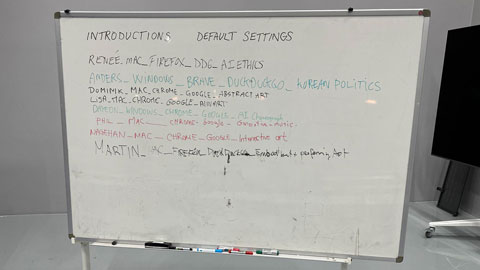 INTRODUCTIONS DEFAULT SETTINGS
RENÉE_MAC_FIREFOX_DDG_AI ETHICS
ANDERS_WINDOWS_BRAVE_DUCKDUCKGO_KOREAN POLITICS
DOMINIK_MAC_CHROME_GOOGLE_ABSTRACT ART
LISA_MAC_CHROME_GOOGLE_
WINDOWS_CHROME_GOOGLE_AI
PHIL_MAC_CHROME_Google_Generative music
NATHAN_MAC_CHROME_Google_Interactive art
MARTIN_MAC_FIREFOX_DuckDuckGo_ performing Art